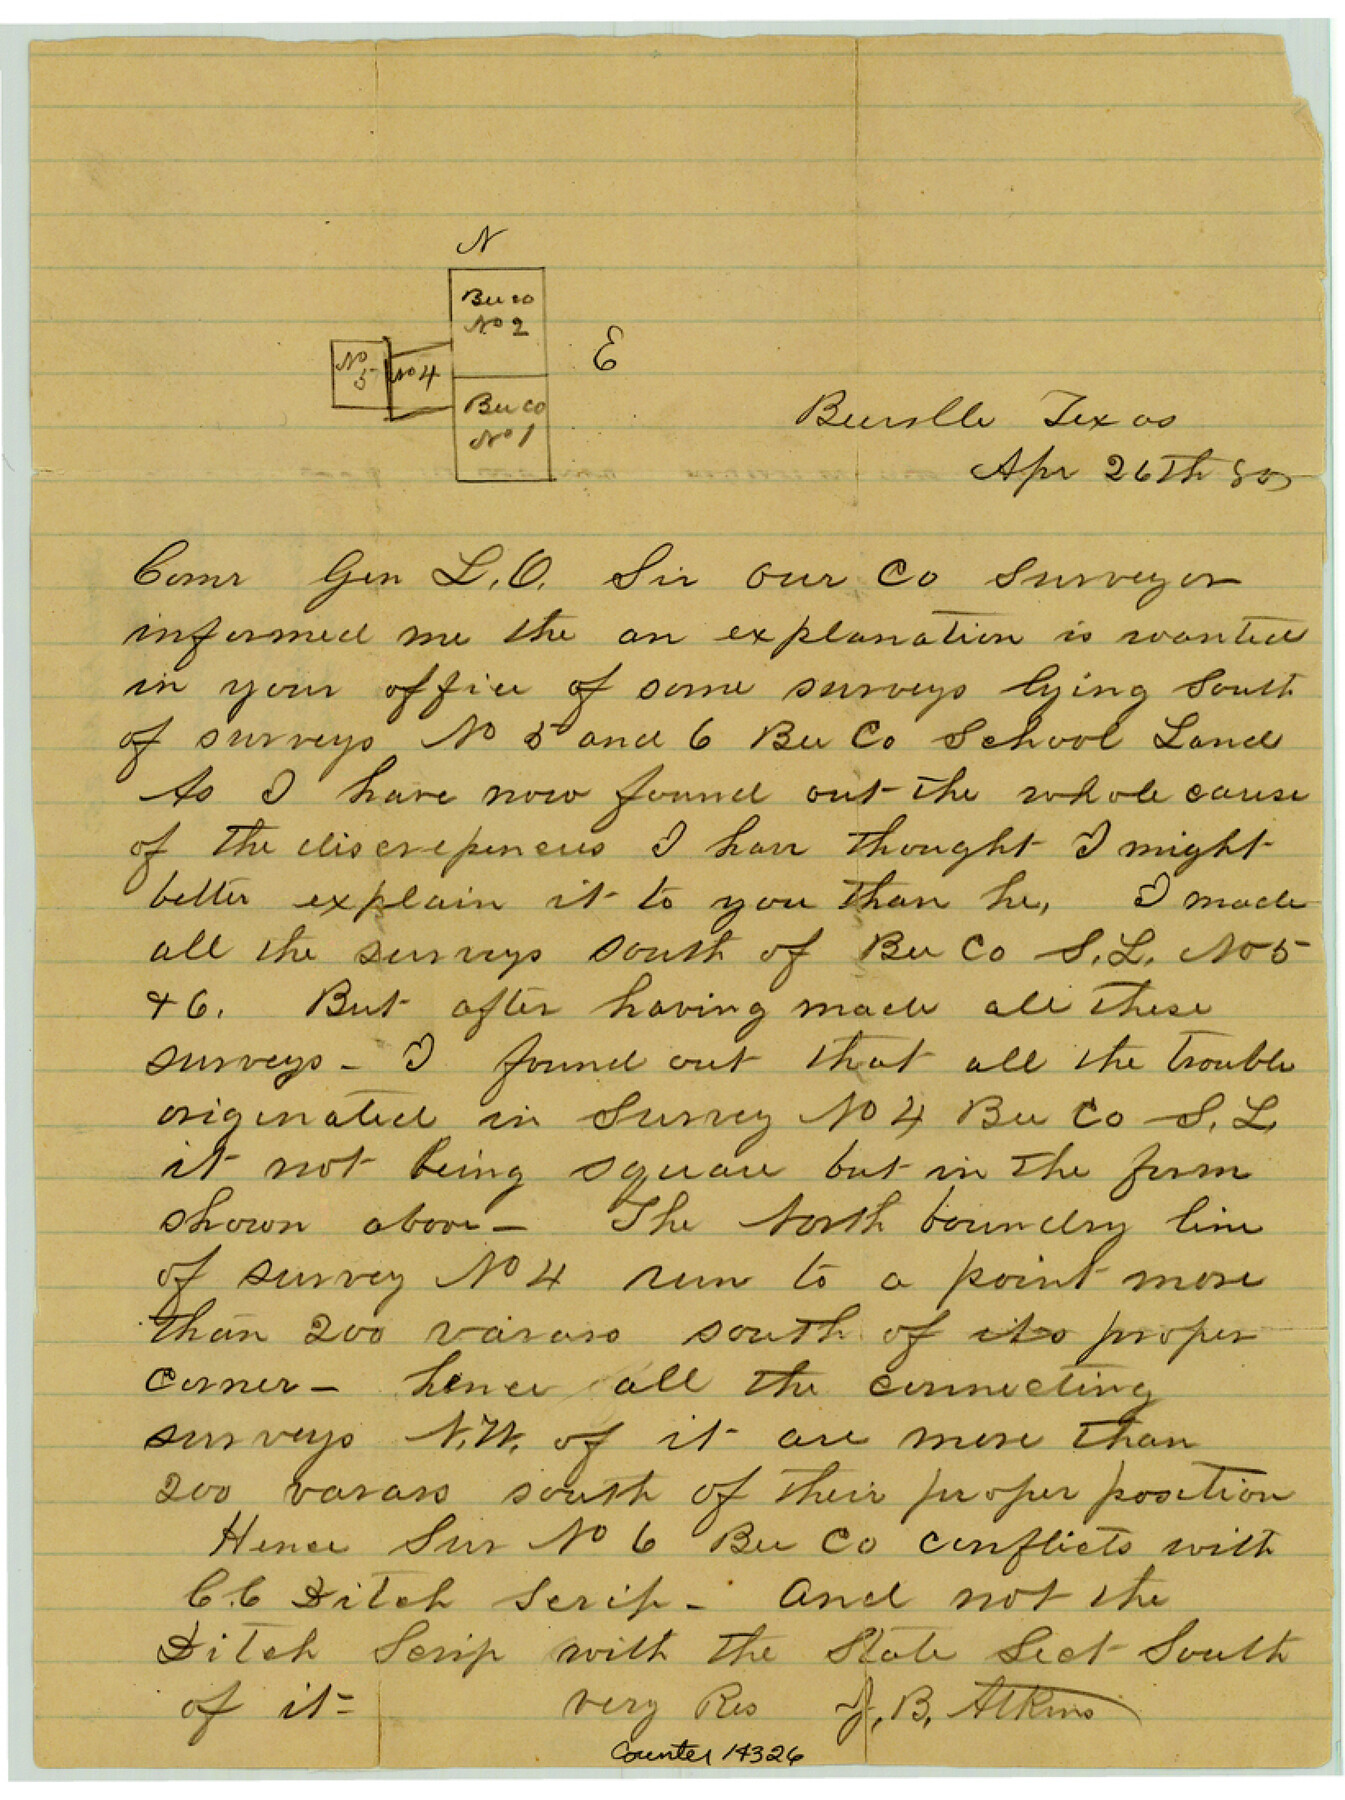 N
Bee co
No 2
E
No
5
No 4
Bee co
No 1
Beeville Texas
Apr 26th
Comr Gen L.O. Sir Our Co Surveyor
informed me the an explanation is wanted
in your office of some surveys lying South
of surveys No 5 and 6 Bee Co School Land
As I have now found out the whole cause
of the discrepencies I have thought I might
better explain it to you than he, I made
all the surveys south of Bee Co S.L. No 5
& 6. But after having made all these
surveys - I found out that all the trouble
originated in Survey No 4 Bee Co S.L.
it not being square but in the form
shown above - The North boundry line
of survey No 4 run to a point more
than 200 varars south of its proper
corner - hence all the connecting
surveys N.W. of it are more than
200 varars south of their proper position
Hence Sur No 6 Bee Co conflicts with
C.C Ditch Scrip - And not the
Ditch Scrip with the State Sect South
of it -
very Res J. B. Atkins
Counter 14326